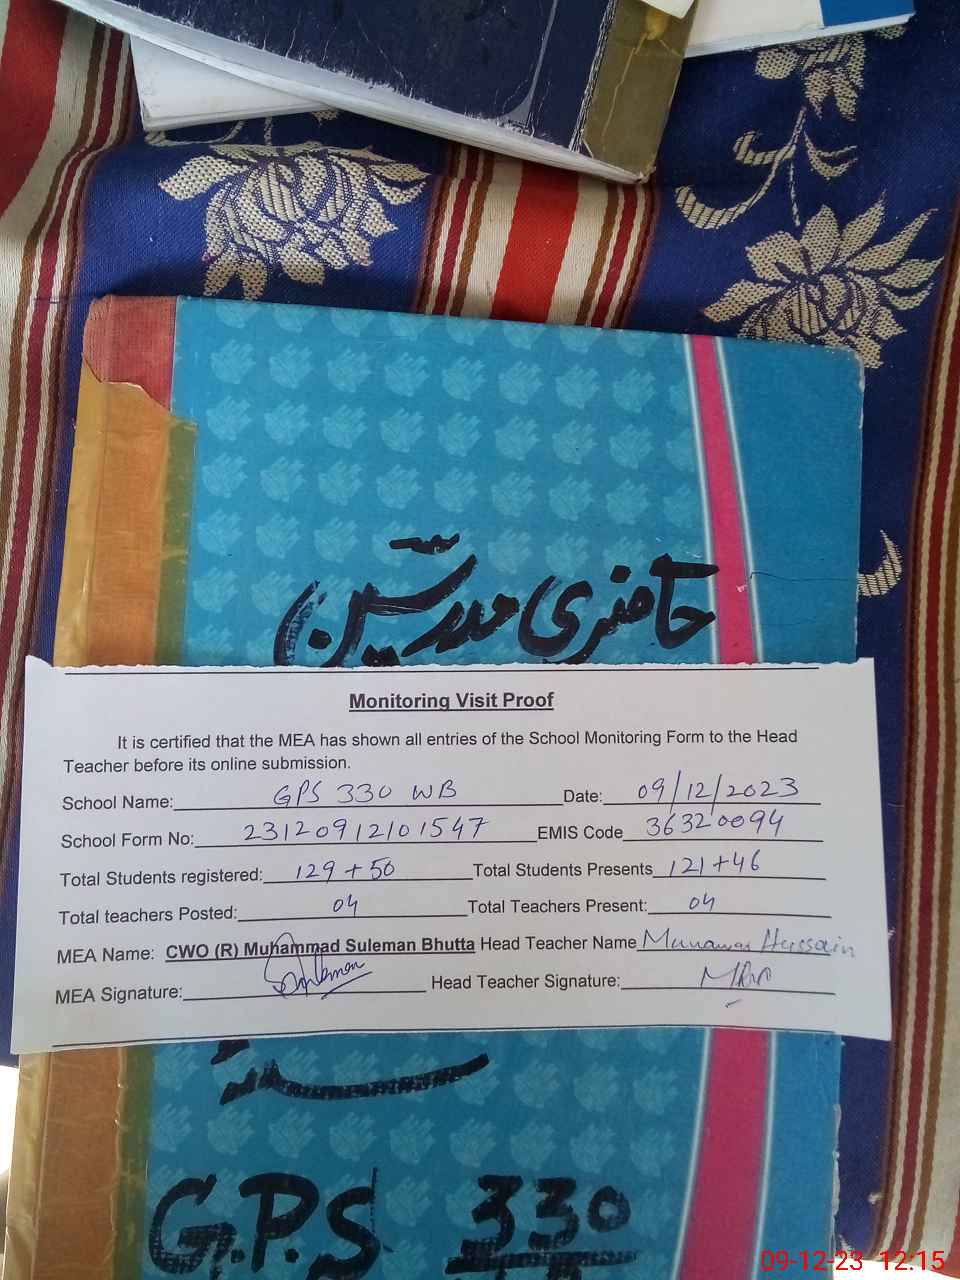 حاضری مدرسین
Monitoring Visit Proof
It is certified that the MEA has shown all entries of the School Monitoring Form to the Head
Teacher before its online submission.
School Name: GPS 330 WB Date: 09/12/2023
School Form No: 23120912101547 EMIS Code 36320094
Total Students registered: 129+50 Total Students Presents 121+46
Total teachers Posted: 04 Total Teachers Present: 04
MEA Name: CWO (R) Muhammad Suleman Bhutta Head Teacher Name Munawar Hussain
MEA Signature: Suleman Head Teacher Signature:
G.P.S 330
09-12-23 12:15